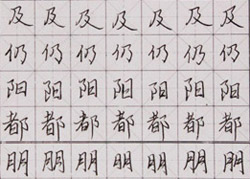 及及及及及及及
仍仍仍仍仍仍仍
阳阳阳阳阳阳阳
都都都都都都都
朋朋朋朋朋朋朋